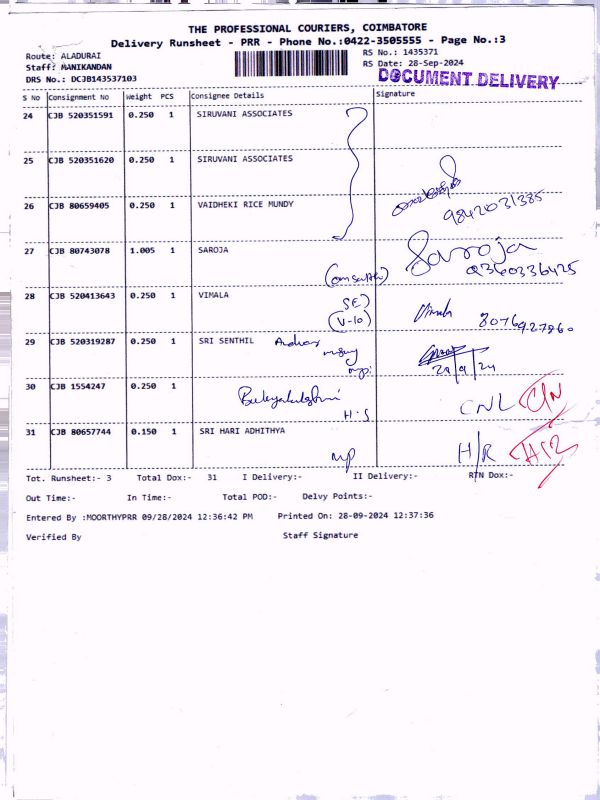 THE PROFESSIONAL COURIERS, COIMBATORE
Delivery Runsheet - PRR - Phone No.:0422-3505555 - Page No.:3
Route: ALADURAI
RS No.: 1435371
Staff: MANIKANDAN
RS Date: 28-Sep-2024
DRS No.: DCJB143537103
DOCUMENT DELIVERY
S No Consignment No Weight PCS Consignee Details Signature
24 CJB 520351591 0.250 1 SIRUVANI ASSOCIATES
25 CJB 520351620 0.250 1 SIRUVANI ASSOCIATES
26 CJB 80659405 0.250 1 VAIDHEKI RICE MUNDY
9842031385
27 CJB 80743078 1.005 1 SAROJA Saroja
9360336425
28 CJB 520413643 0.250 1 VIMALA
(V-10) Vimala 8076927860
29 CJB 520319287 0.250 1 SRI SENTHIL
28/9/24
30 CJB 1554247 0.250 1
H.S CNL
31 CJB 80657744 0.150 1 SRI HARI ADHITHYA
mp H/R
Tot. Runsheet:- 3 Total Dox:- 31 I Delivery:- II Delivery:- RTN Dox:-
Out Time:- In Time:- Total POD:- Delvy Points:-
Entered By :MOORTHYPRR 09/28/2024 12:36:42 PM Printed On: 28-09-2024 12:37:36
Verified By Staff Signature